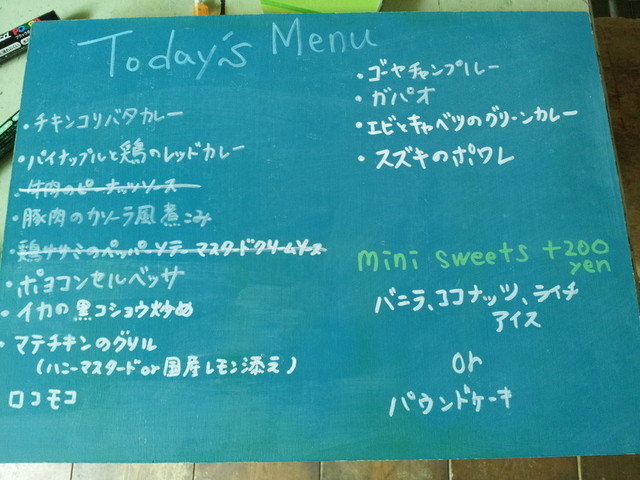 Today's Menu
・チキンコリバタカレー
・パイナップルと鶏のレッドカレー
・牛肉のピーナッツソース
・豚肉のカソーラ風煮こみ
・鶏ササミのペッパーソテー マスタードクリームソース
・ポヨコンセルベッサ
・イカの黒コショウ炒め
・マテチキンのグリル
(ハニーマスタードor国産レモン添え)
ロコモコ
・ゴーヤチャンプルー
・ガパオ
・エビとキャベツのグリーンカレー
・スズキのポワレ
mini sweets +200
yen
バニラ、ココナッツ、ライチ
アイス
or
パウンドケーキ